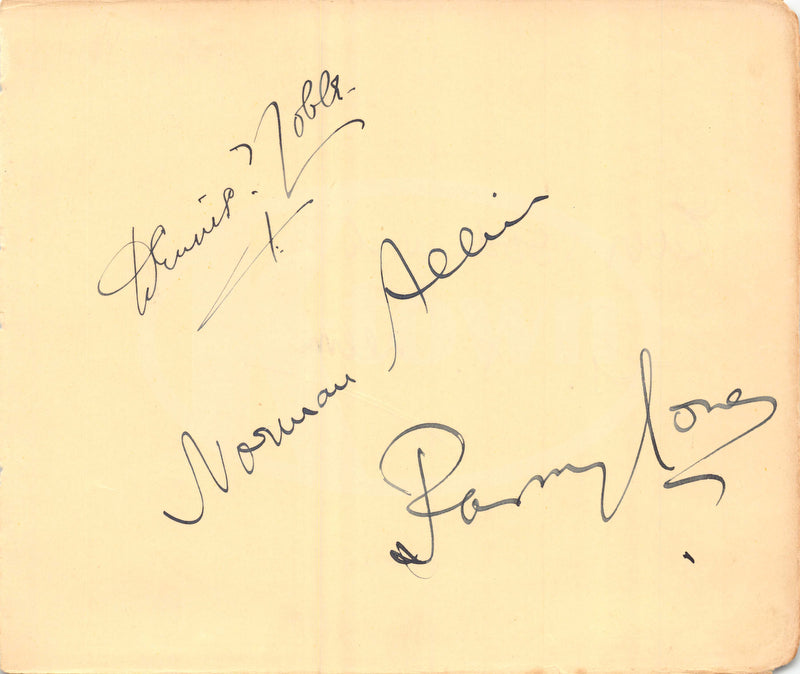 Dennis Noble
Norman Allin
Parry Jones